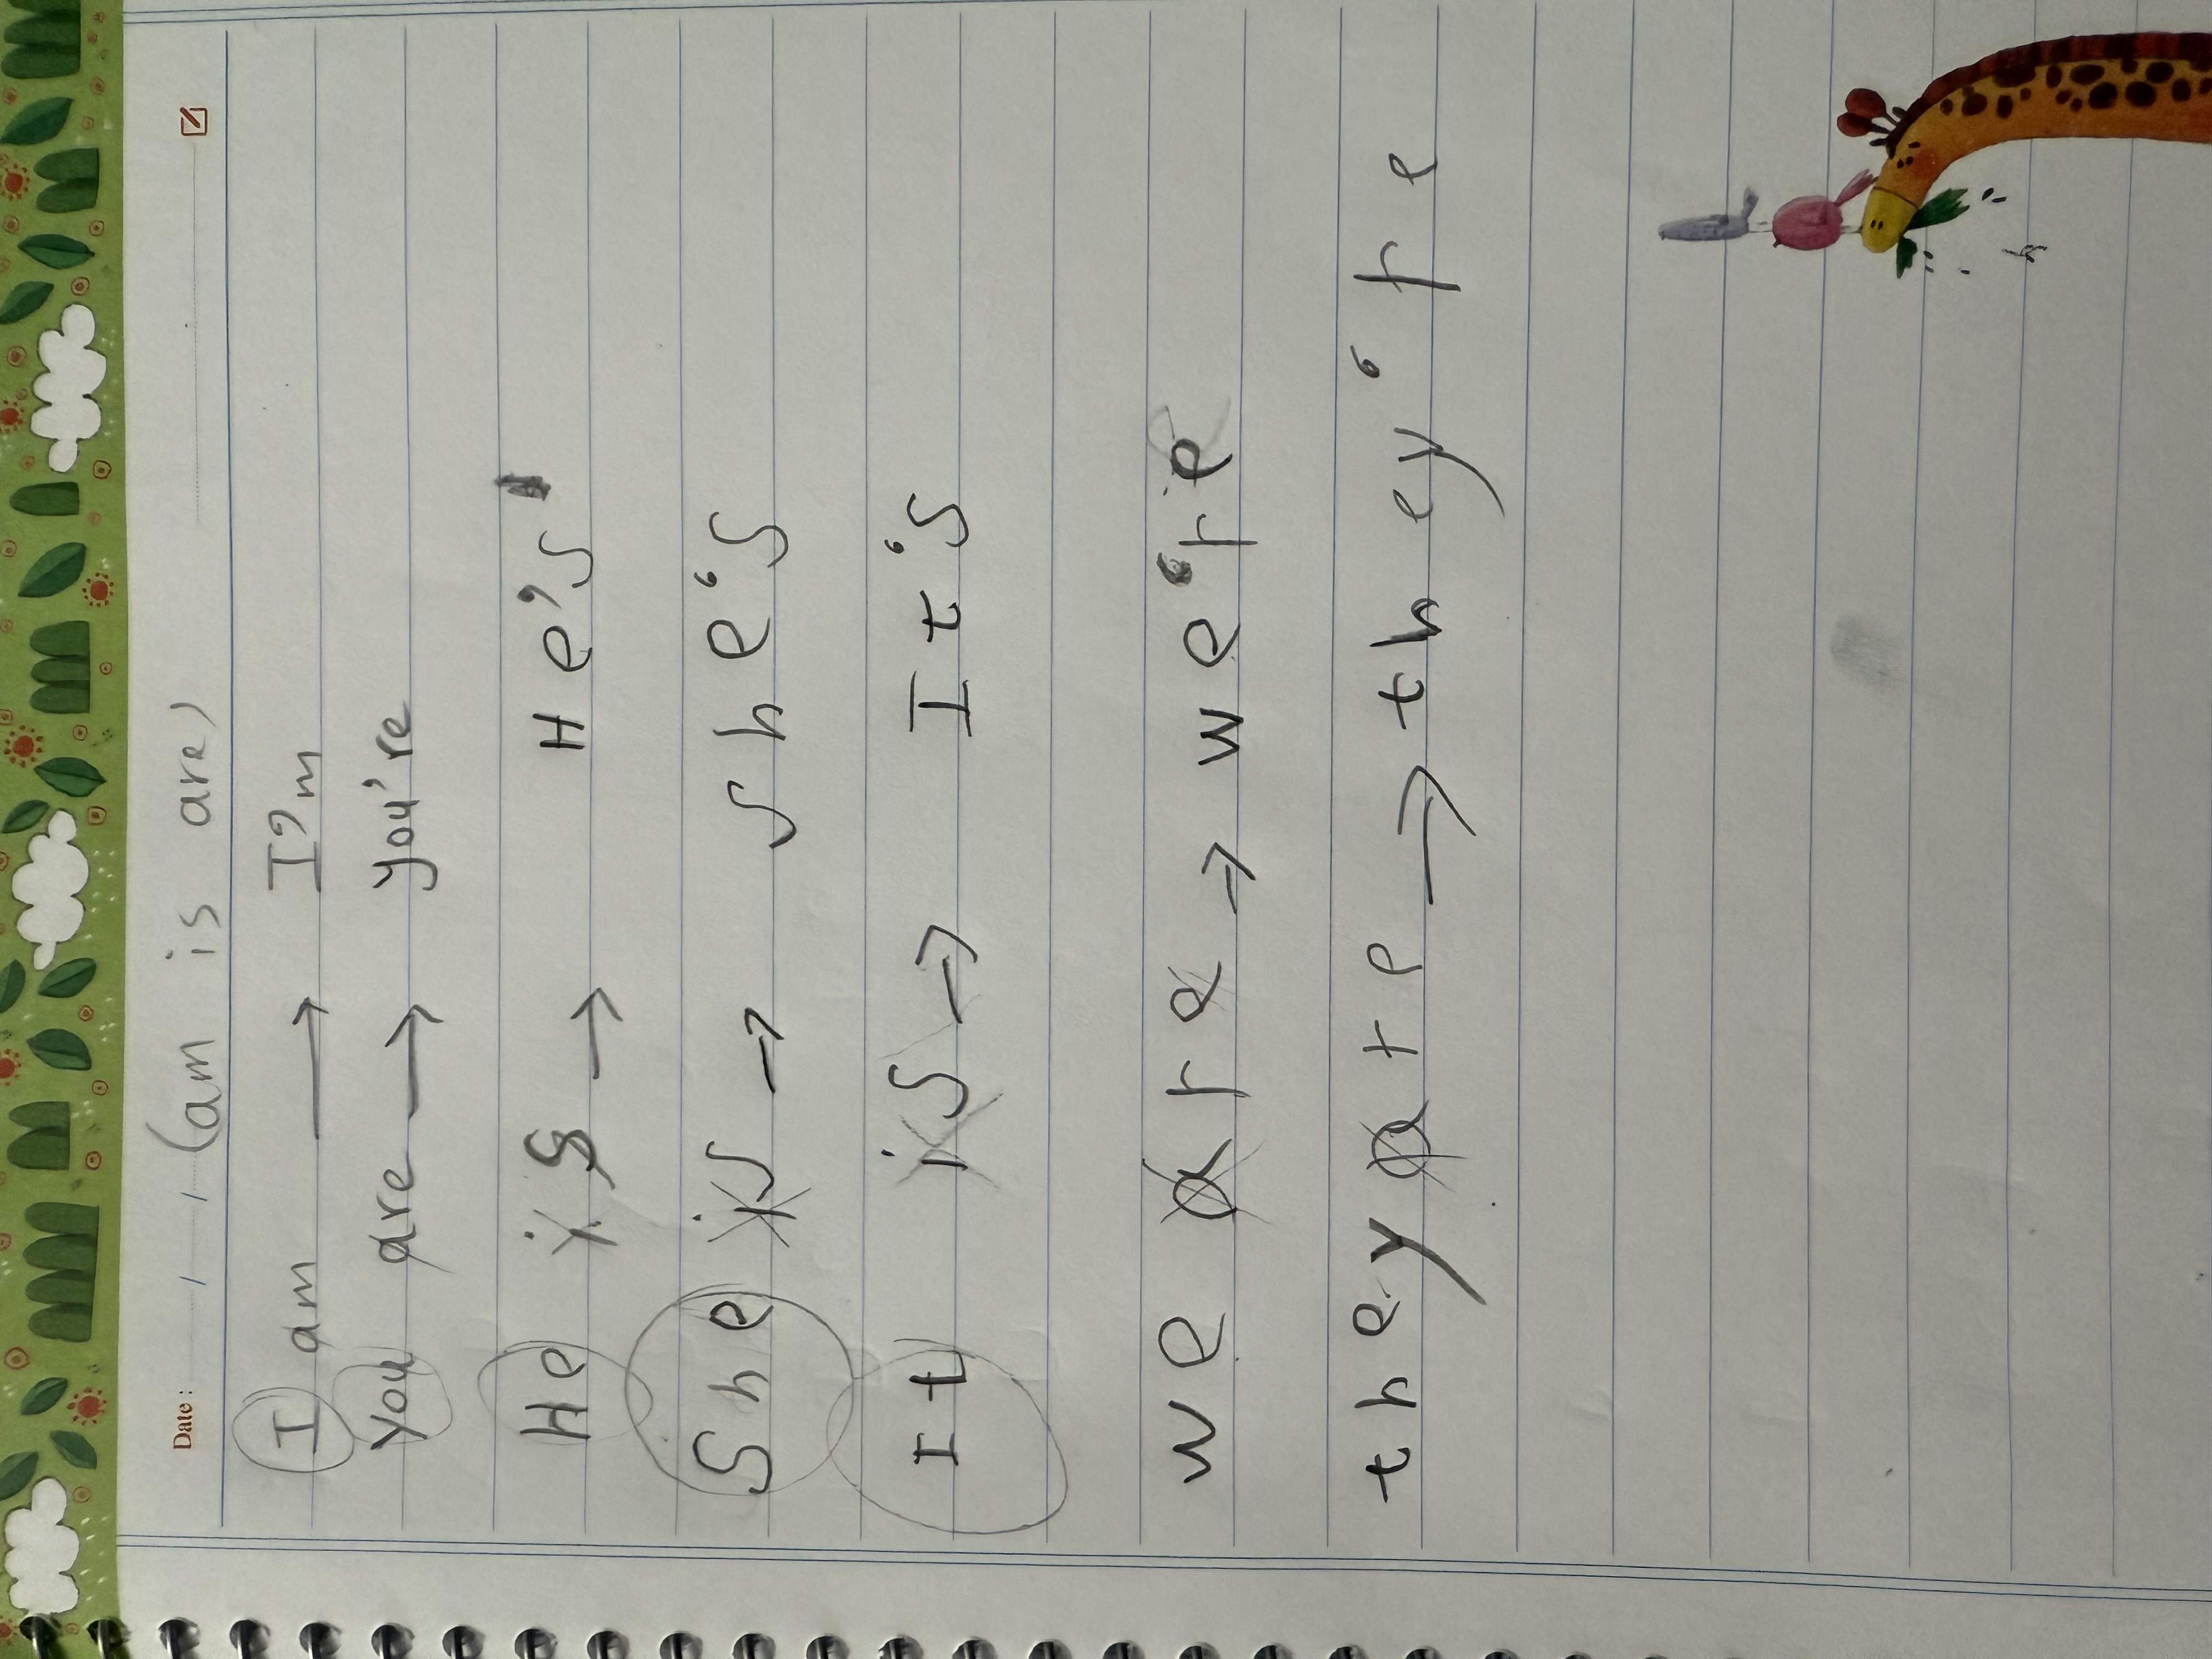 Date : / / (am is are)
I am → I'm
You are → you're
He is → He's'
She is → she's
It is → It's
we are → we're
they are → they're